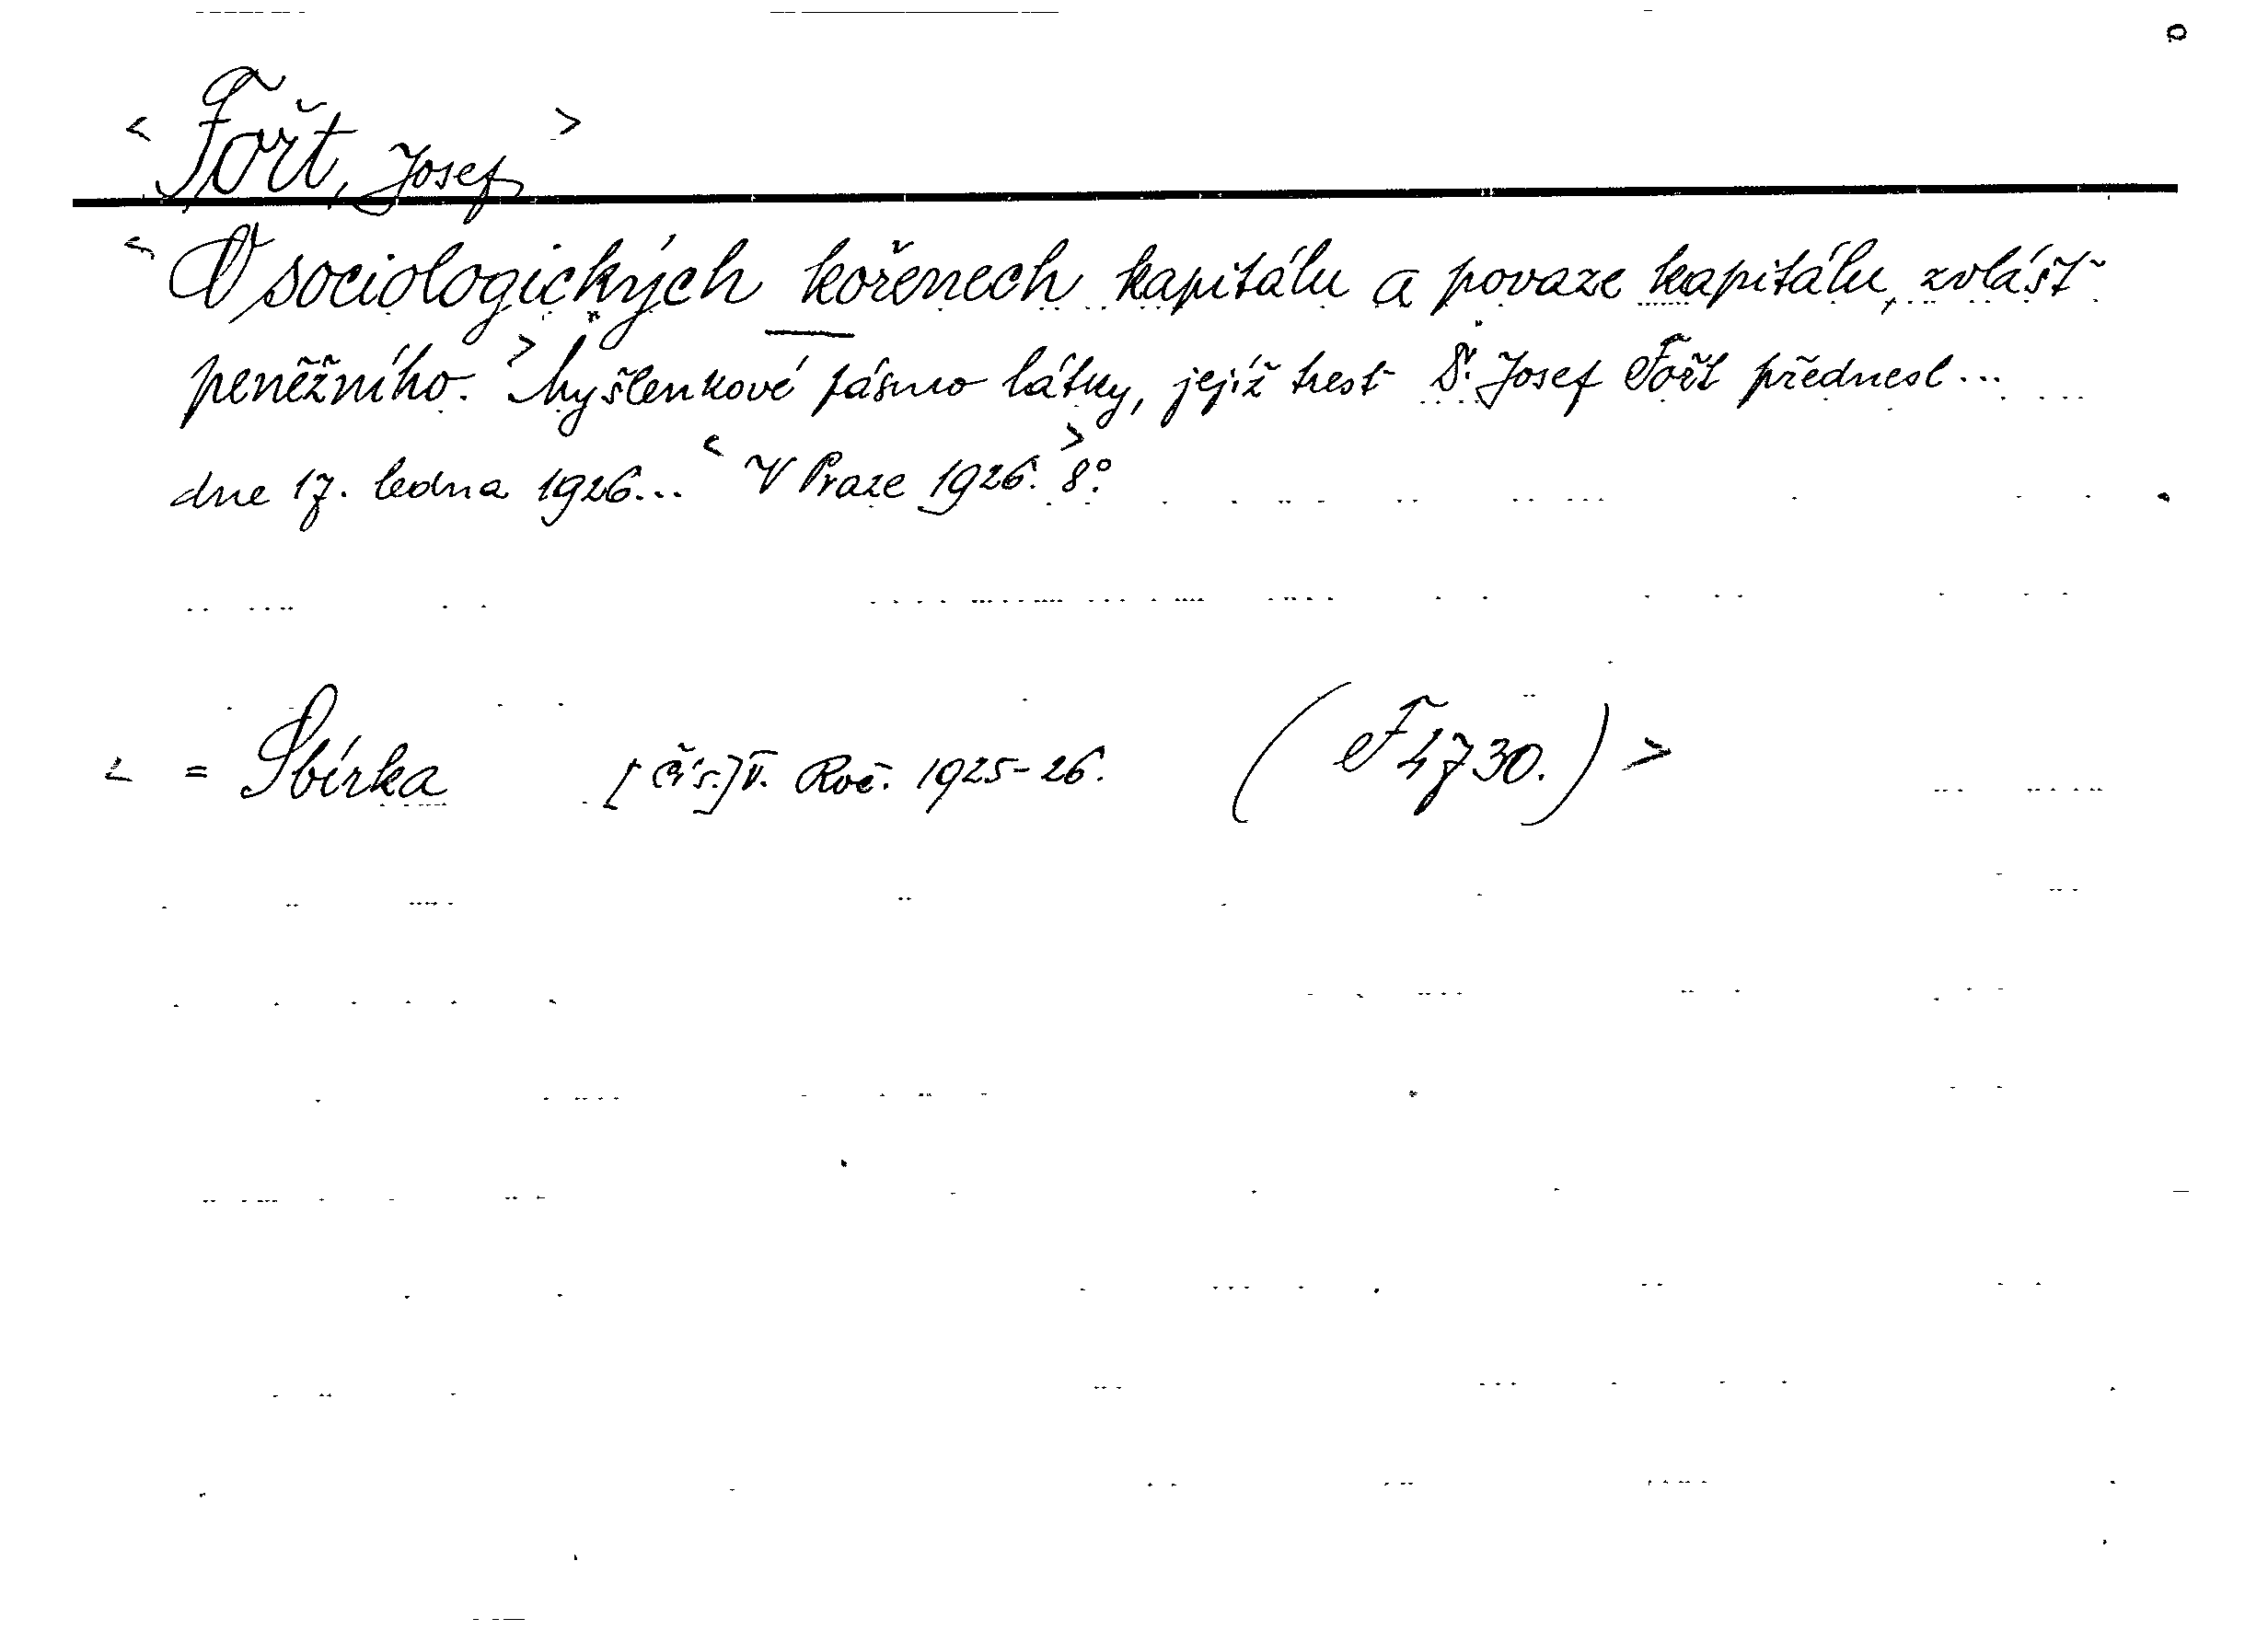 < Fořt, Josef >
< O sociologických kořenech kapitálu a povaze kapitálu, zvlášť
peněžního. > Myšlenkové pásmo látky, jejíž tresť Dr. Josef Fořt přednesl...
dne 17. ledna 1926... < V Praze 1926. > 8°.
< = Sbírka [čís.] V. Roč. 1925-26. (F 4730.) >